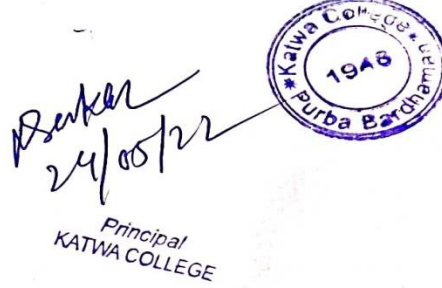 Katwa College
Purba Bardhaman
1948
24/05/22
Principal
KATWA COLLEGE